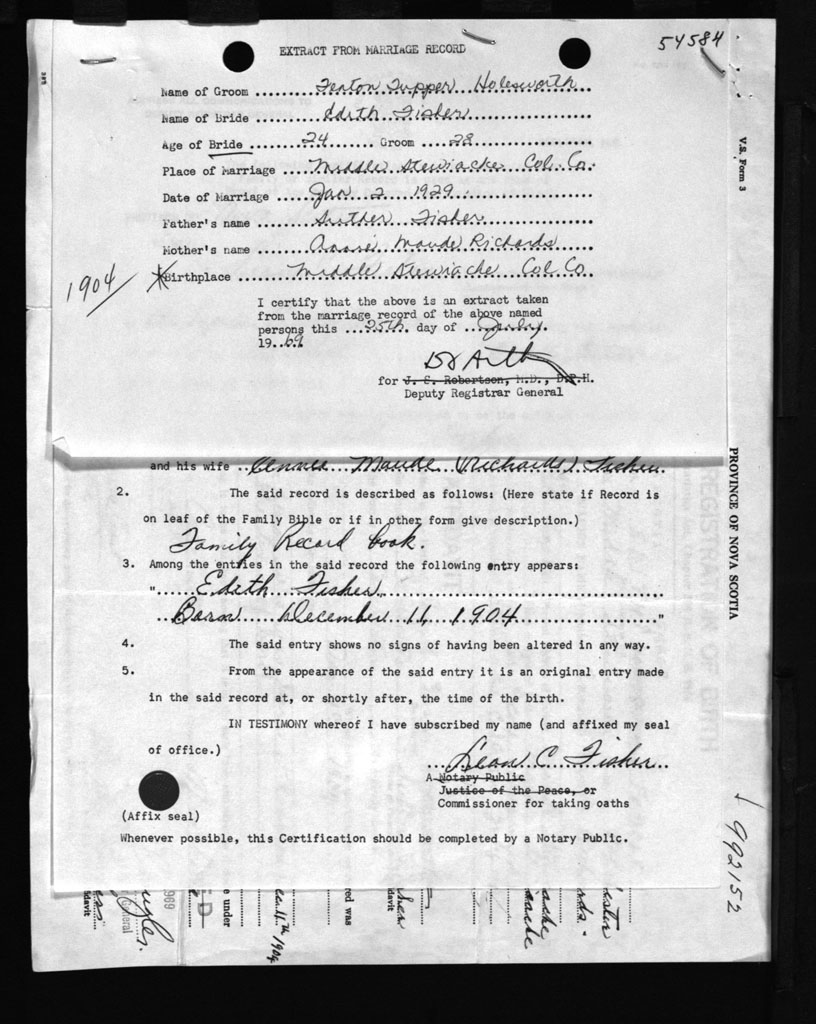 54584
EXTRACT FROM MARRIAGE RECORD
Name of Groom ..... Fenton Tupper Holesworth
Name of Bride ..... Edith Fisher
Age of Bride ..... 24 ..... Groom ... 28
Place of Marriage .. Middle Stewiacke Col. Co.
Date of Marriage ... Jan 2 1929
Father's name ..... Luther Fisher
Mother's name ..... Annie Maude Richards
1904/ *Birthplace ..... Middle Stewiacke Col. Co.
I certify that the above is an extract taken
from the marriage record of the above named
persons this ...25th. day of ..July.
19..69
for J. S. Robertson, M.D., D.P.H.
Deputy Registrar General
and his wife ..Annie Maude (Richards) Fisher.
2. The said record is described as follows: (Here state if Record is
on leaf of the Family Bible or if in other form give description.)
Family Record book.
3. Among the entries in the said record the following entry appears:
"..... Edith Fisher.....
...Born December 11, 1904....."
4. The said entry shows no signs of having been altered in any way.
5. From the appearance of the said entry it is an original entry made
in the said record at, or shortly after, the time of the birth.
IN TESTIMONY whereof I have subscribed my name (and affixed my seal
of office.)
...Lean C. Fisher...
A Notary Public
Justice of the Peace, or
Commissioner for taking oaths
(Affix seal)
Whenever possible, this Certification should be completed by a Notary Public.
V.S. Form 3
PROVINCE OF NOVA SCOTIA
992152
1969
General
davit
e under
Dec. 11th 1904
red was
davit